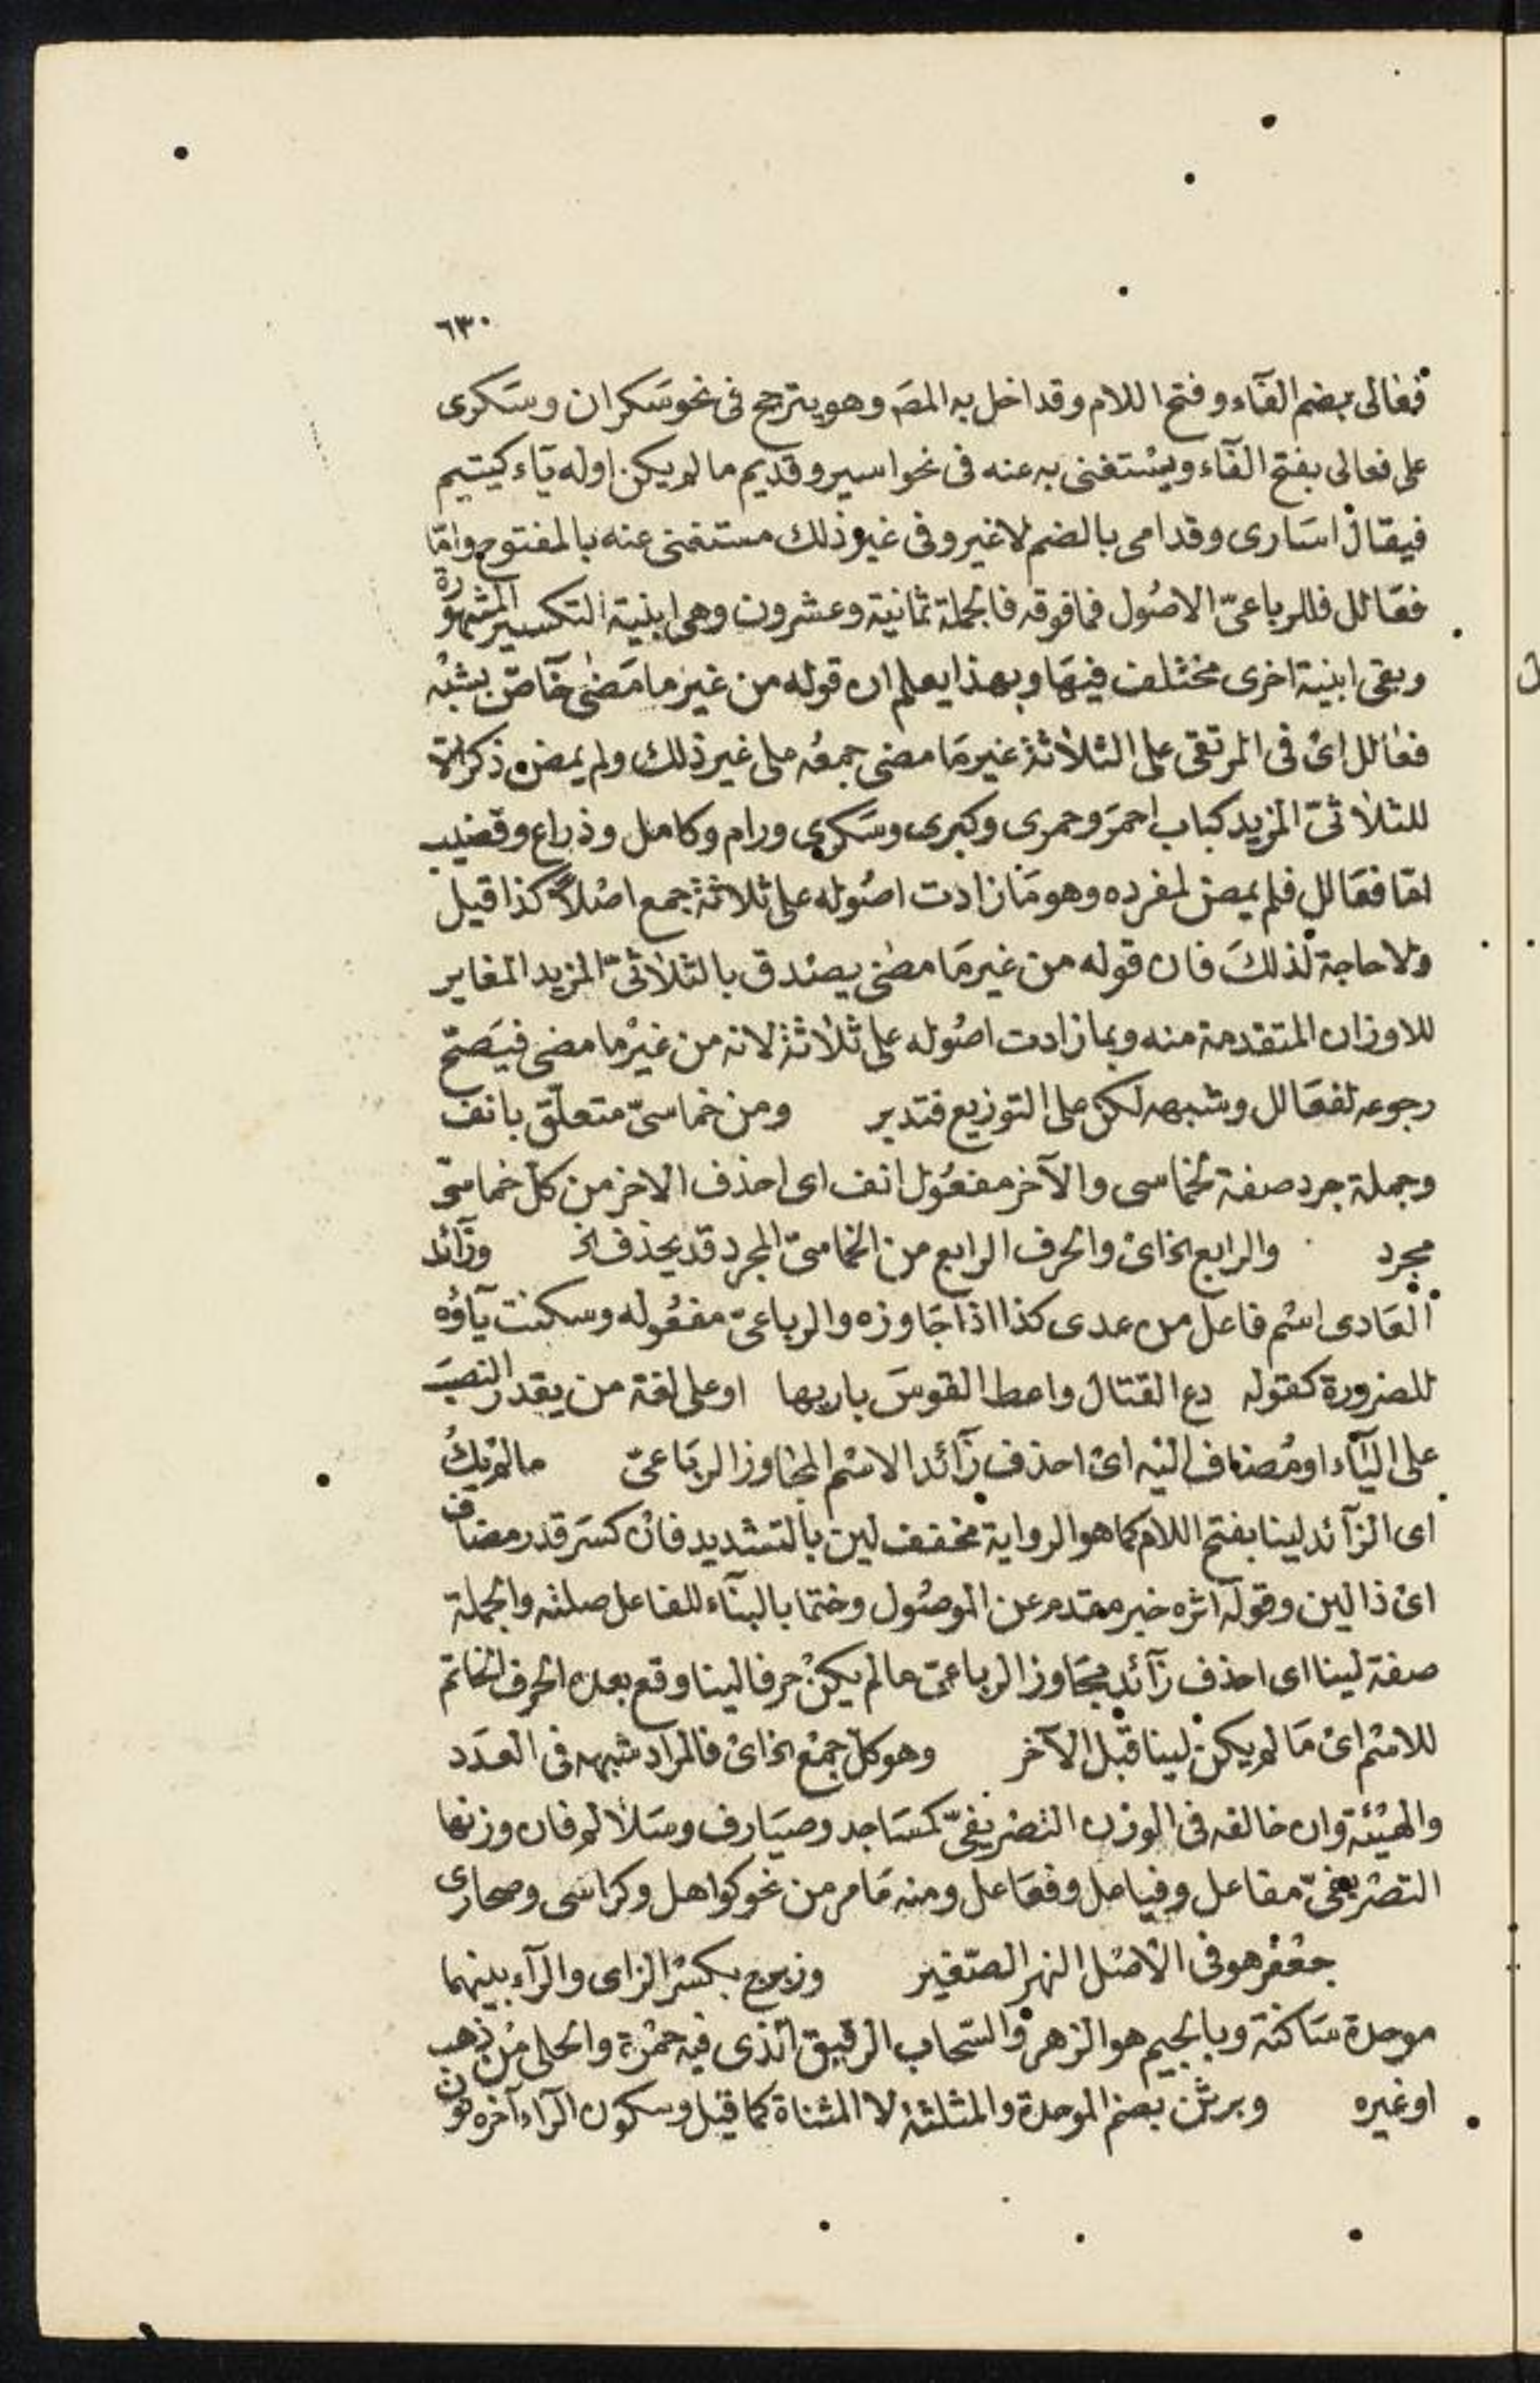 ٦٣٠
ففعالى بضم الفآء وفتح اللام وقد اخل به المصَ وهو يترجح فى نحو سَكران وسَكرى
على فعالى بفتح الفآء ويسْتغنى به عنه فى نحو اسير وقديم ما لم يكن اوله يَاء كيتيم
فيقال اسَارى وقدامى بالضم لاغير وفى غير ذلك مستغنى عنه بالمفتوح وامّا
فعَالل فللرباعىّ الاصُول فما فوقه فالجملة ثمانية وعشرون وهى ابنية التكسير المشهورة
وبقى ابنية اخرى مختلف فيهَا وبهذا يعلم ان قوله من غير ما مَضىٰ خآصّ بشبْه
فعالل اىْ فى المرتقى على الثلاثة غير مَا مضى جمعُه على غير ذلك ولم يمض ذكرالّا
للثلاثىّ المزيد كباب احمرَ وحمرى وكبرى وسَكرى ورام وكامل وذراع وقضيب
امّا فعَالل فلم يمض لمفرده وهو مَا زادت اصُوله على ثلاثة جمع اصْلاً كذا قيل
ولا حاجة لذلكَ فان قوله من غير مَا مضٰى يصْدق بالثلاثىّ المزيد المغاير
للاوزان المتقدمة منه وبما زادت اصُوله على ثلاثة لانه من غيْر ما مضى فيَصَحّ
رجوعه لفعَالل وشبهه لكن على التوزيع فتدبر ومن خماسىّ متعلّق بانف
وجملة جرد صفة لخماسى والآخر مفعُول انف اى احذف الاخر من كلّ خماسىّ
مجرد والرابع الخ اىْ والحرف الرابع من الخماسىّ المجرد قد يحذف الخ وزآئد
العَادى اسْم فاعل من عدى كذا اذا جَاوزه والرباعىّ مفعُوله وسكنت يآؤه
للضرورة كقوله دع القتال واعط القوسَ باريها او على لغة من يقدر النصبَ
على اليَآء او مُضاف اليْه اىْ احذف زآئد الاسْم المجاوز الربَاعىّ ما لم يكُ
اى الزآئد لينا بفتح اللام كما هو الرواية مخفف لين بالتشديد فان كسَر قدر مضاف
اىْ ذا لين وقوله اثره خبر مقدم عن الموصُول وختما بالبنآء للفاعل صلته والجملة
صفة لينا اى احذف زآئد مجَاوز الرباعىّ ما لم يكنْ حرفا لينا وقع بعده الحرف الخاتم
للاسْم اىْ مَا لم يكن لينا قبْل الآخر وهو كلّ جمْع الخ اىْ فالمراد شبهه فى العدَد
والهيْئة وان خالفه فى الوزن التصْريفىّ كمسَاجد وصيَارف وسَلالم فان وزنها
التصْريفىّ مفاعل وفياعل وفعَاعل ومنه مَا مر من نحو كواهل وكراسى وصحارى
جعْفر هو فى الاصْل النهر الصّغير وزبرج بكسْر الزاى والرآء بينهما
موحدة سَاكنة وبالجيم هو الزهر والسّحاب الرقيق الذى فيه حمْرة والحلى منْ ذهب
او غيره وبرثن بضم الموحدة والمثلثة لا المثناة كما قيل وسكون الرآء آخره نون